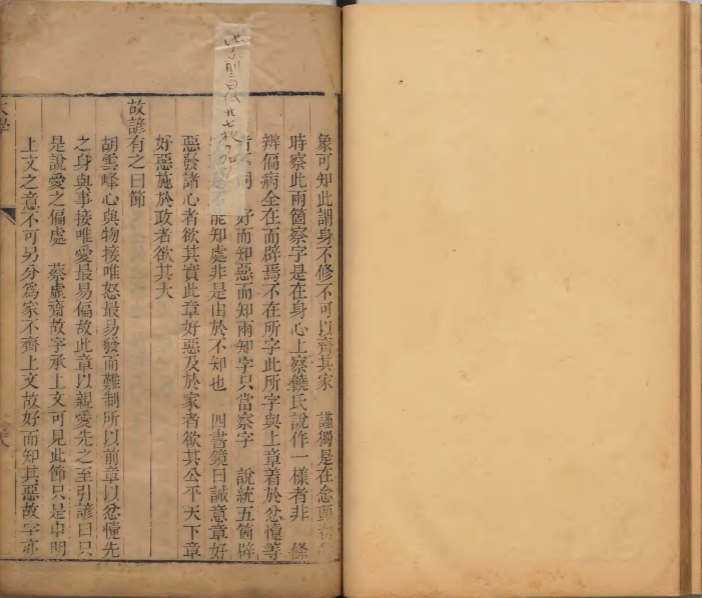 象可知此謂身不修不可以齊其家　謹獨是在念頭
時察此兩箇察字是在身心上察饒氏說作一樣者非　條
辨偏病全在而辟焉不在所字此所字與上章着於忿懥等
不同　好而知惡而知兩知字只當察字　說統五箇辟
不能知處非是由於不知也　四書鏡曰誠意章好
惡發諸心者欲其實此章好惡及於家者欲其公平天下章
好惡施於政者欲其大
故諺有之曰節
胡雲峰心與物接唯怒最易發而難制所以前章以忿懥先
之身與事接唯愛最易偏故此章以親愛先之至引諺曰只
是說愛之偏處　蔡虛齋故字承上文可見此節只是申明
上文之意不可另分爲家不齊上文故好而知其惡故字亦
大學
八
此頁前白紙